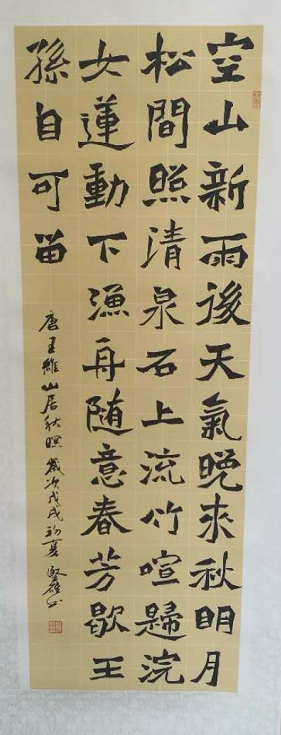 空山新雨後天氣晚来秋明月
松間照清泉石上流竹喧歸浣
女蓮動下漁舟随意春芳歇王
孫自可留
唐王維山居秋暝歲次戊戌初夏